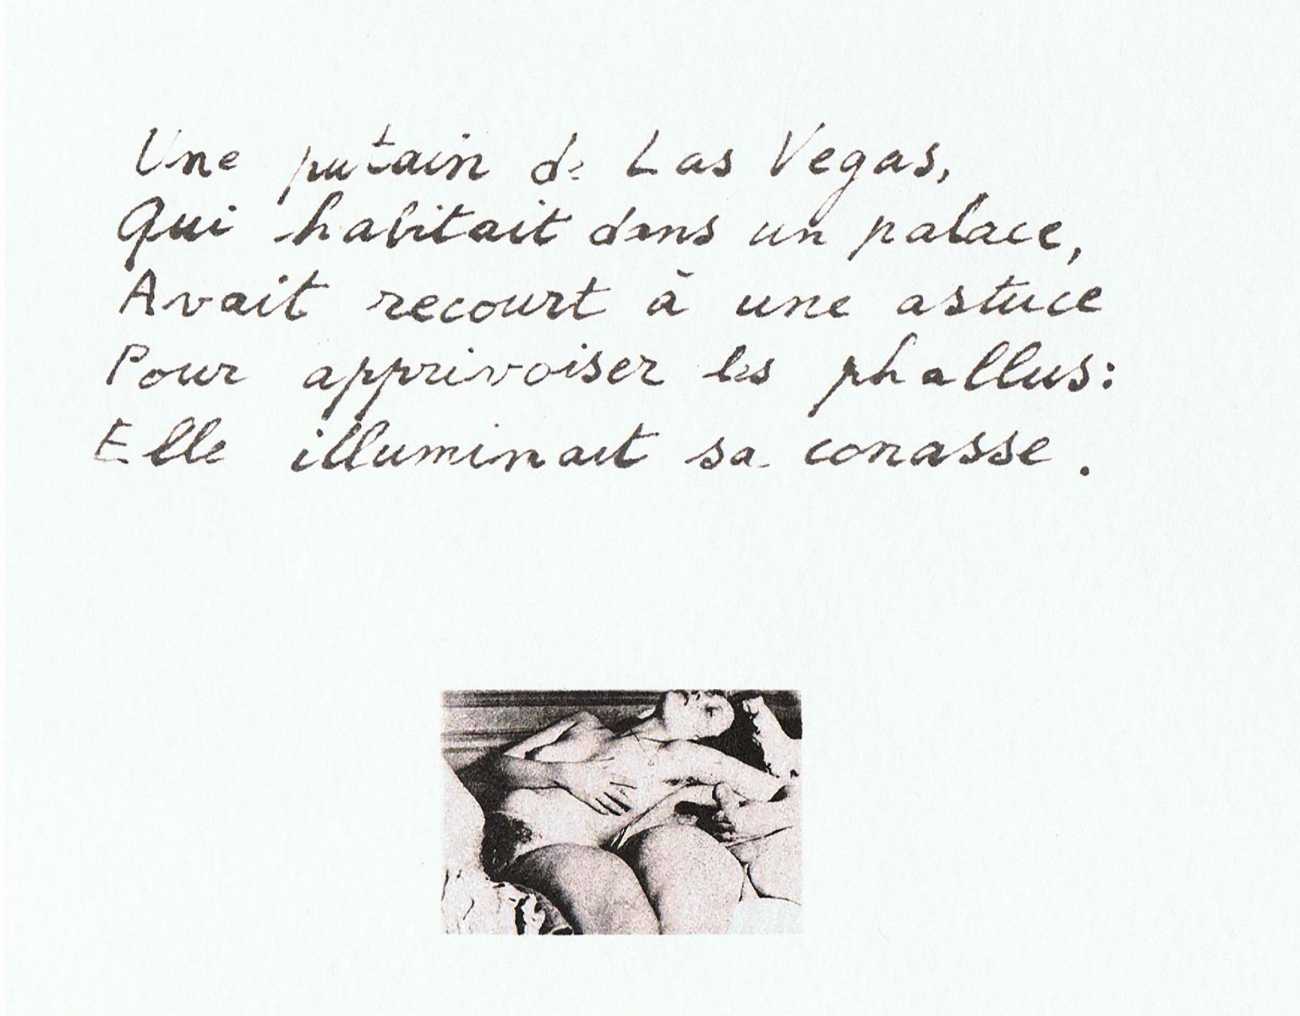 Une putain de Las Vegas,
Qui habitait dans un palace,
Avait recourt à une astuce
Pour apprivoiser les phallus:
Elle illuminait sa conasse.